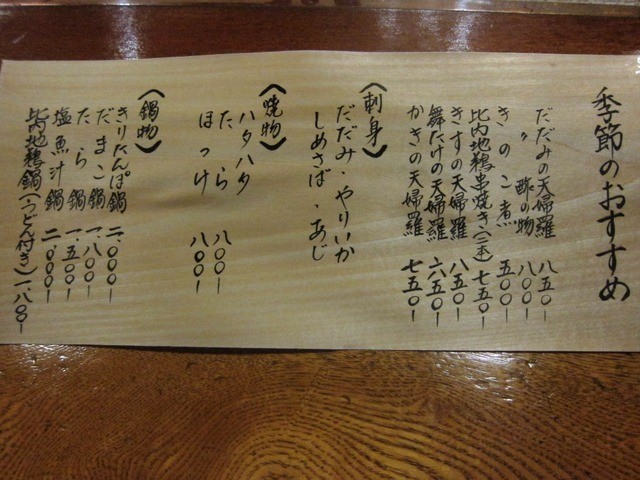 季節のおすすめ
だだみの天婦羅 八五〇-
〃 酢の物 八〇〇-
きのこ煮 五〇〇-
比内地鶏串焼き(二本) 七五〇-
きすの天婦羅 八五〇-
舞たけの天婦羅 六五〇-
かきの天婦羅 七五〇-
〈刺身〉
だだみ・やりいか
しめさば・あじ
〈焼物〉
ハタハタ
たら 八〇〇-
ほっけ 八〇〇-
〈鍋物〉
きりたんぽ鍋 二.〇〇〇-
だまこ鍋 一.八〇〇-
たら鍋 一.五〇〇-
塩魚汁鍋 二.〇〇〇-
比内地鶏鍋(うどん付き) 一.八〇〇-